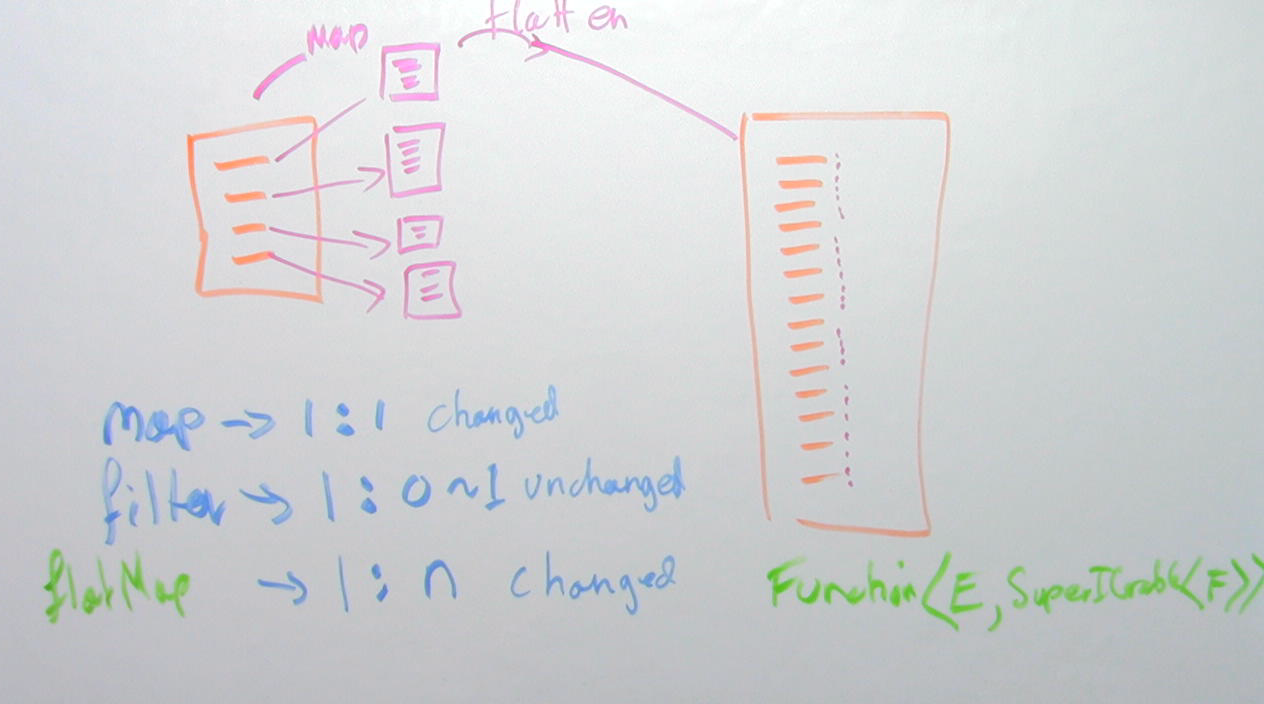 Map
flatten
map → 1:1 changed
filter → 1:0~1 unchanged
flatMap → 1:n changed
Function<E, SuperIterable<F>>